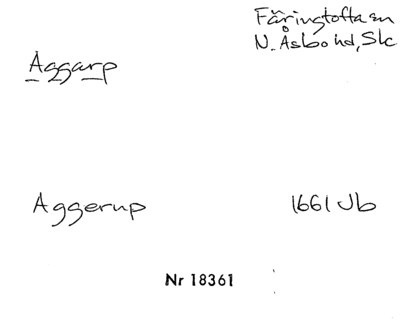 Färingtofta sn
N. Åsbo hd, Skc
Aggarp
Aggerup 1661 Jb
Nr 18361